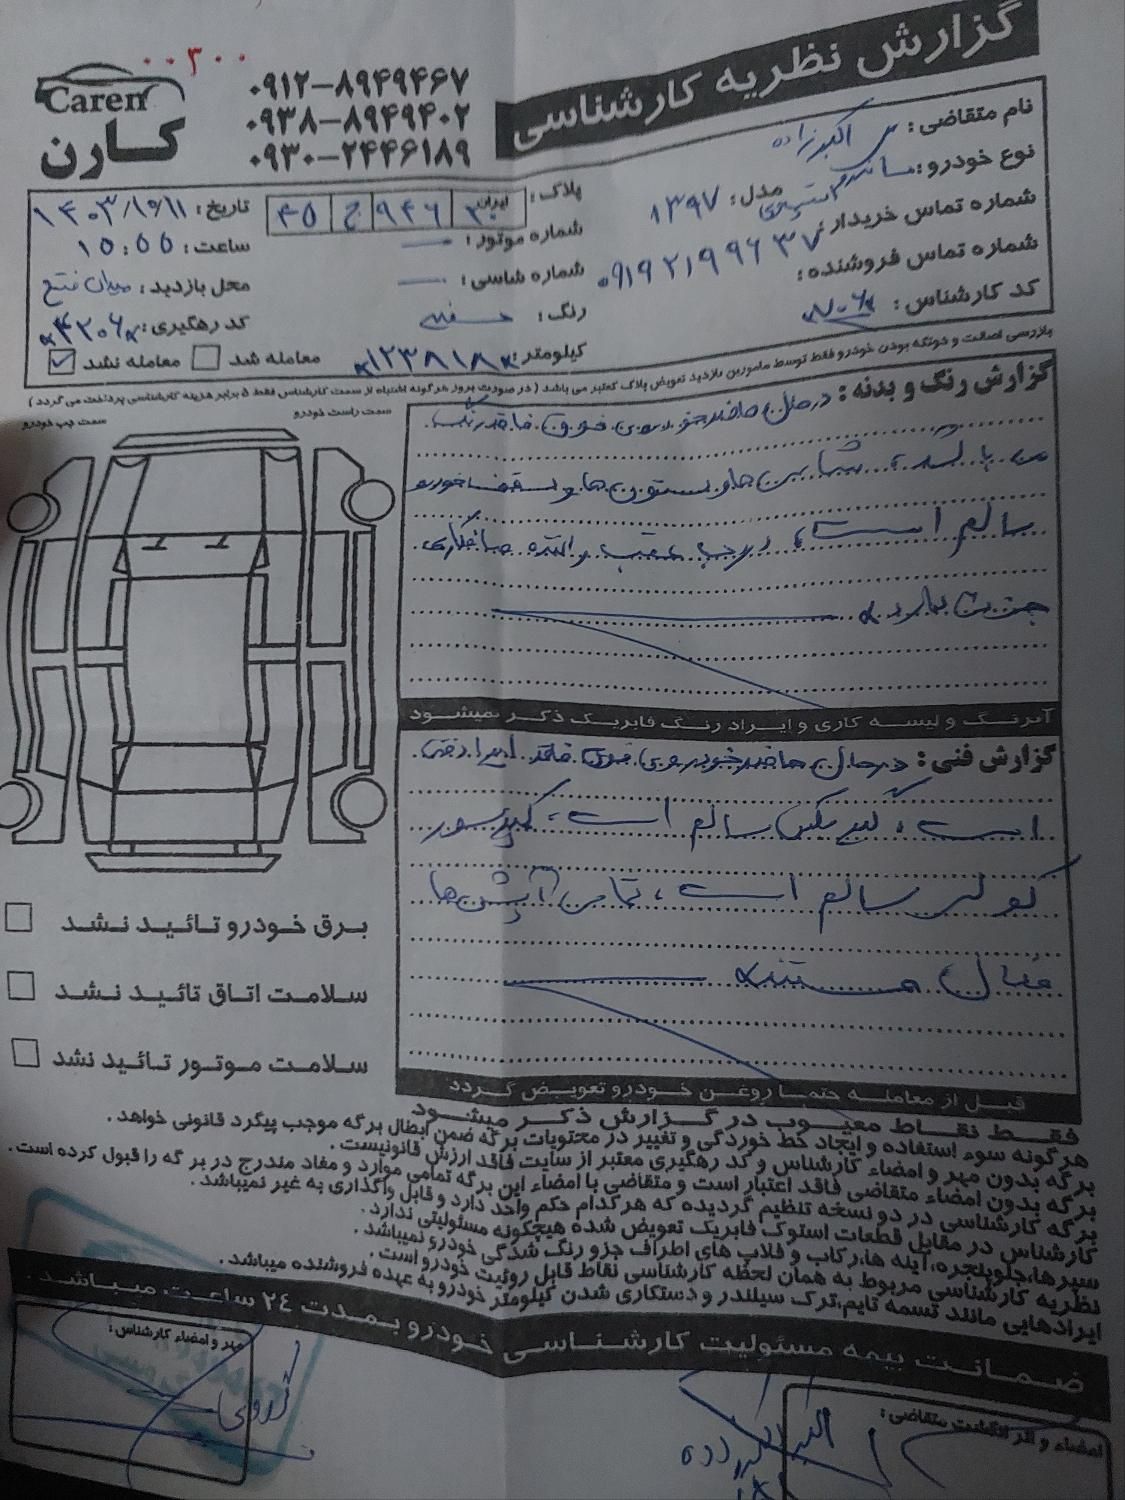 ۰۰۳۰۰
Caren
کارن
۰۹۱۲-۸۹۴۹۴۶۷
۰۹۳۸-۸۹۴۹۴۰۲
۰۹۳۰-۲۴۴۶۱۸۹
گزارش نظریه کارشناسی
نام متقاضی: اکبرزاده
نوع خودرو: ساندرو استپ‌وی مدل: ۱۳۹۷
شماره تماس خریدار: ۰۹۱۹۲۱۹۹۶۳۷
شماره تماس فروشنده:
کد کارشناس:
پلاک: ایران ۹۴۶ ج ۴۵
شماره موتور: —
شماره شاسی: —
رنگ: سفید
کیلومتر: ۱۲۳۸۱۸
تاریخ: ۱۴۰۳/۱۰/۱۱
ساعت: ۱۵:۵۵
محل بازدید: میدان فتح
کد رهگیری: ۴۲۰۶
معامله شد معامله نشد
بازرسی اصالت و دوتکه بودن خودرو فقط توسط مامورین بازدید تعویض پلاک معتبر می باشد (در صورت بروز هرگونه اشتباه از سمت کارشناس فقط ۵ برابر هزینه کارشناسی پرداخت می گردد)
سمت راست خودرو
سمت چپ خودرو
گزارش رنگ و بدنه: درحال حاضر خودروی فوق فاقد رنگ
می باشد، شاسی ها و ستون ها و سقف خودرو
سالم است، درب عقب راننده صافکاری
جزئی دارد
آبرنگ و لیسه کاری و ایراد رنگ فابریک ذکر نمیشود
گزارش فنی: درحال حاضر خودروی فوق فاقد ایراد فنی
است، گیربکس سالم است، کمپرسور
کولر سالم است، تمامی آپشن ها
فعال هستند
قبل از معامله حتما روغن خودرو تعویض گردد
برق خودرو تائید نشد
سلامت اتاق تائید نشد
سلامت موتور تائید نشد
فقط نقاط معیوب در گزارش ذکر میشود
هرگونه سوء استفاده و ایجاد خط خوردگی و تغییر در محتویات برگه ضمن ابطال برگه موجب پیگرد قانونی خواهد .
برگه بدون مهر و امضاء کارشناس و کد رهگیری معتبر از سایت فاقد ارزش قانونیست .
برگه بدون امضاء متقاضی فاقد اعتبار است و متقاضی با امضاء این برگه تمامی موارد و مفاد مندرج در برگه را قبول کرده است .
برگه کارشناسی در دو نسخه تنظیم گردیده که هرکدام حکم واحد دارد و قابل واگذاری به غیر نمیباشد .
کارشناس در مقابل قطعات استوک فابریک تعویض شده هیچگونه مسئولیتی ندارد .
سپرها،جلوپنجره،آینه ها،رکاب و فلاپ های اطراف جزو رنگ شدگی خودرو نمیباشد .
نظریه کارشناسی مربوط به همان لحظه کارشناسی نقاط قابل روئیت خودرو است .
ایرادهایی مانند تسمه تایم،ترک سیلندر و دستکاری شدن کیلومتر خودرو به عهده فروشنده میباشد .
ضمانت بیمه مسئولیت کارشناسی خودرو بمدت ۲۴ ساعت میباشد .
مهر و امضاء کارشناس:
امضاء و اثر انگشت متقاضی: